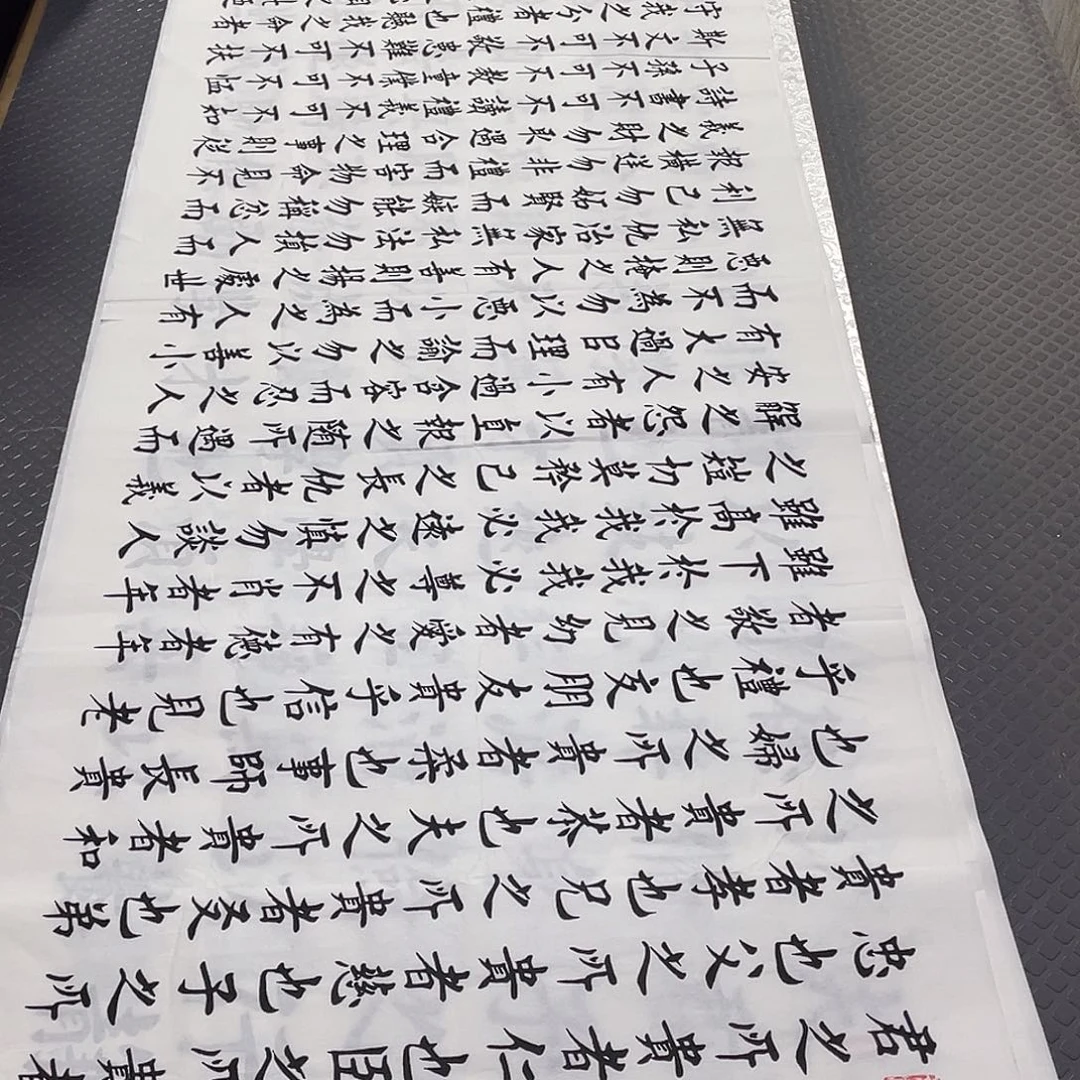 君之所貴者仁也臣之所貴者
忠也父之所貴者慈也子之所
貴者孝也兄之所貴者友也弟
之所貴者恭也夫之所貴者和
也婦之所貴者柔也事師長貴
乎禮也交朋友貴乎信也見老
者敬之見幼者愛之有德者年
雖下於我我必尊之不肖者年
雖高於我我必遠之慎勿談人
之短切莫矜己之長仇者以義
解之怨者以直報之隨所遇而
安之人有小過含容而忍之人
有大過㠯理而諭之勿以善小
而不為勿以惡小而為之人有
惡則掩之人有善則揚之處世
無私仇治家無私法勿損人而
利己勿妬賢而嫉能勿稱忿而
報橫逆勿非禮而害物命見不
義之財勿取遇合理之事則從
詩書不可不讀禮義不可不知
子孫不可不教童僕不可不恤
斯文不可不敬患難不可不扶
守我之分者禮也聽我之命者